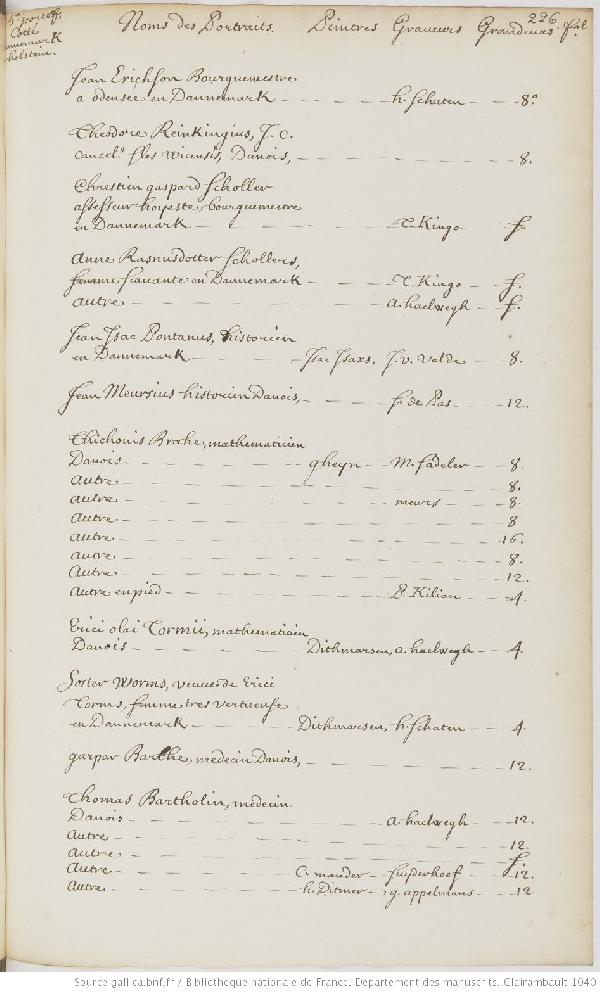 5e porteff.
Cotté
Dannemark
holstein.
226
Noms des Portraits. Peintres Graveurs Grandeurs fol.
Jean Erichson Bourguemestre
a odensée en Dannemark — h. Schaten — 8°
Theodore Reinkingius, J. C.
cancel. Sles vicensis, Danois, — 8.
Chrestien gaspard Scholler
assesseur bourguemestre
en Dannemark — T. Kingo — f.
Anne Rasmusdotter Schollers,
femme sçauante en Dannemark — T. Kingo — f.
autre — a. haelwegh — f.
Jean Isac Pontanus, historien
en Dannemark — Isac Isaxs. J. v. Velde — 8.
Jean Meursius historien Danois, — S. de Pas — 12.
Thichonis Brahe, mathematicien
Danois — gheyn — M. Sadeler — 8.
autre — 8.
autre — meurs — 8
autre — 8
autre — 16.
autre — 8.
Autre — 12.
autre en pied — P. Kilian — 4.
Erici olai Tormii, mathematicien
Danois — Dithmarsen, a. haelwegh — 4.
Soster Worms, veuue de Erici
Torms, femme tres vertueuse
en Dannemark — Dithmarsen, h. Schaten — 4
gaspar Barthe, medecin Danois, — 12.
Thomas Bartholin, medecin
Danois — a. haelwegh — 12.
autre — 12.
autre — f.
autre — C. mander — Suyderhoef — 12.
autre — h. Ditmer — g. appelmans — 12
Source gallica.bnf.fr / Bibliothèque nationale de France. Département des manuscrits. Clairambault 1040